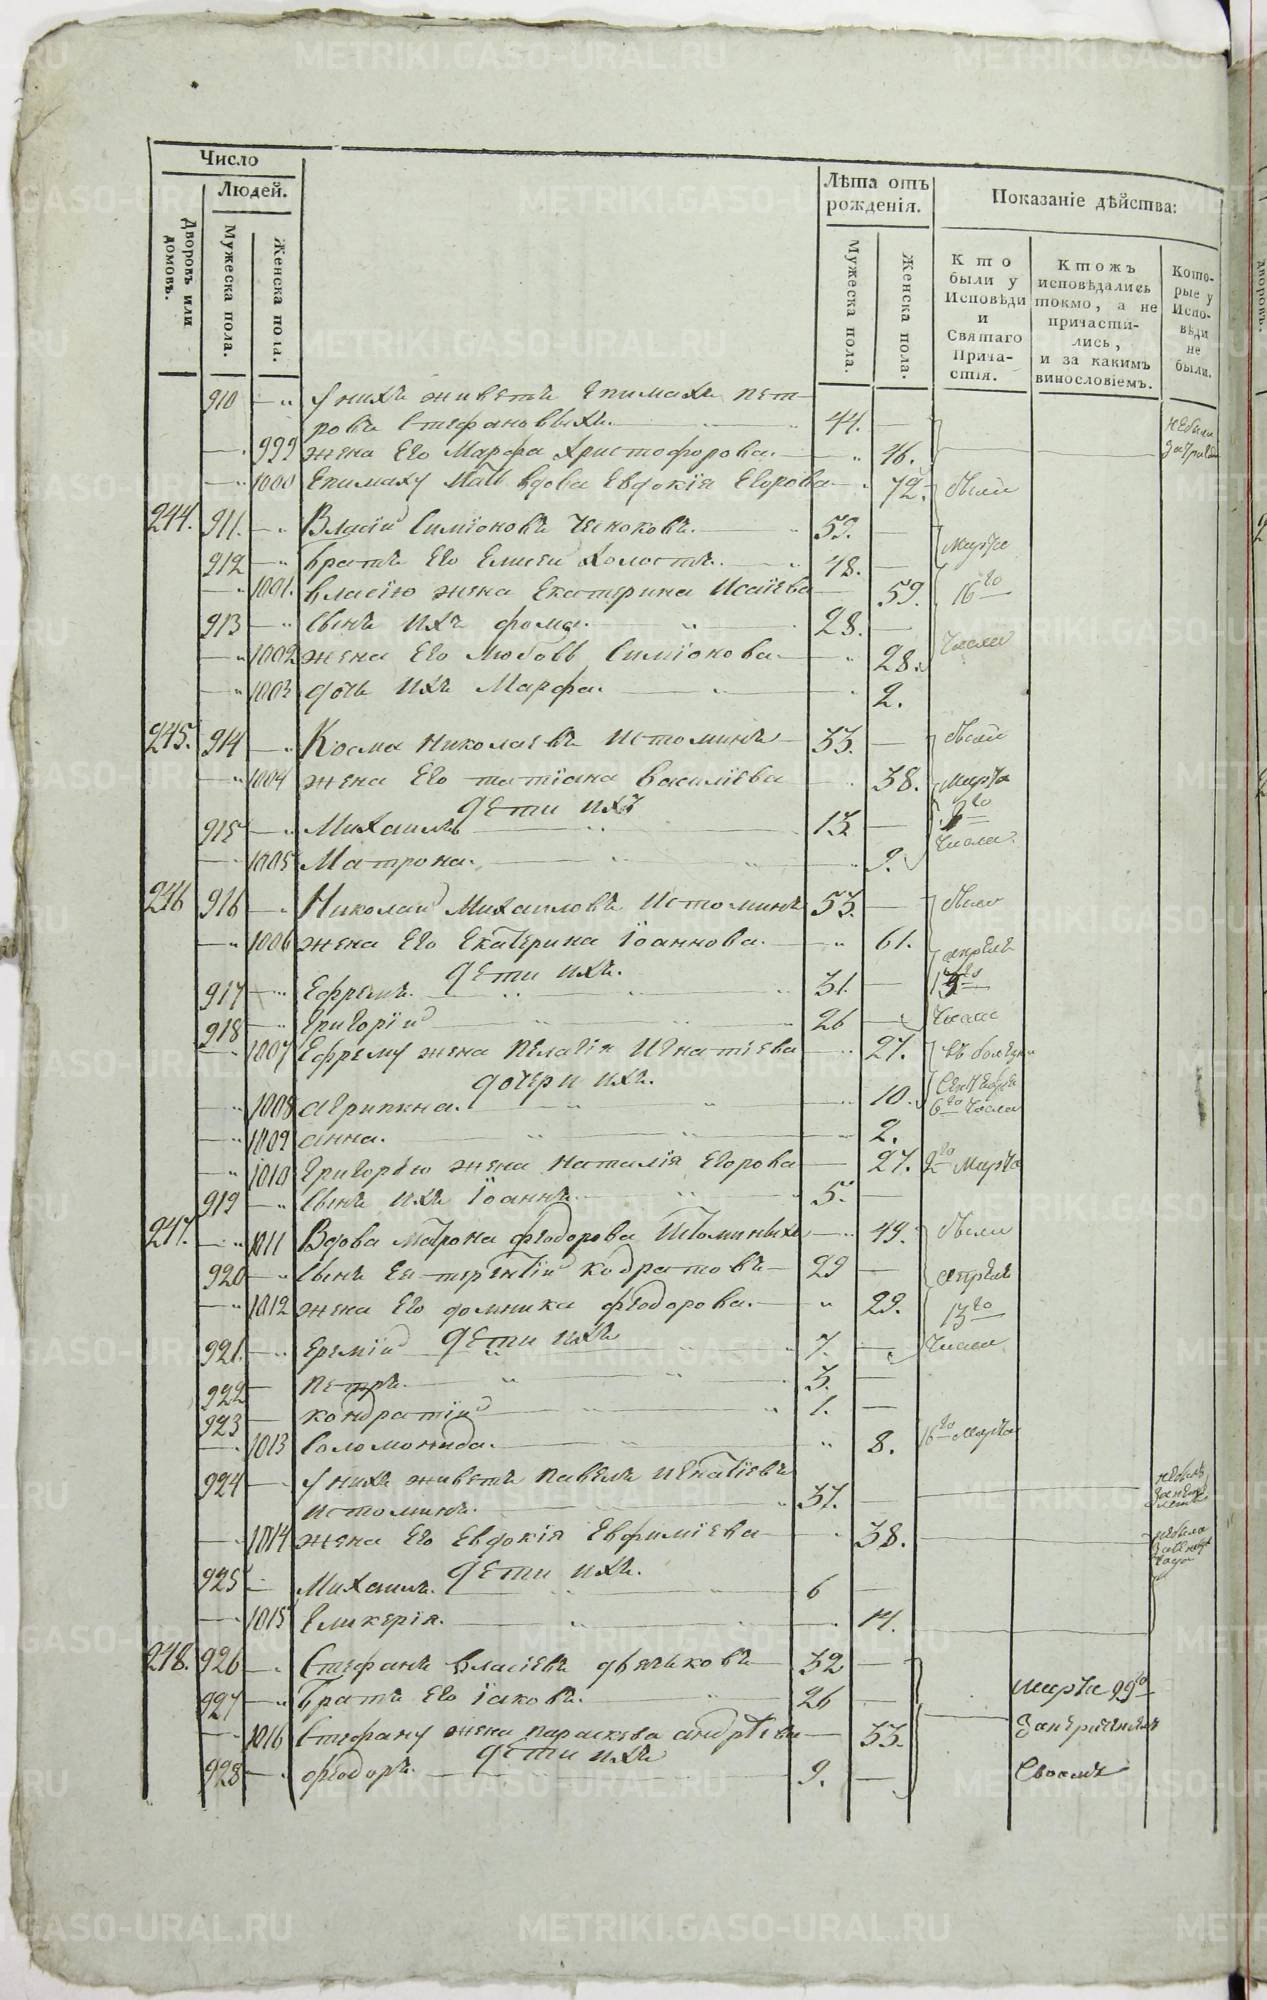 Число
Людей.
Дворовъ или домовъ.
Мужеска пола.
Женска пола.
Лѣта отъ рожденія.
Мужеска пола.
Женска пола.
Показаніе дѣйства:
Кто были у Исповѣди и Святаго Причастія.
Ктожъ исповѣдались токмо, а не причастились, и за какимъ винословіемъ.
Которые у Исповѣди не были.
910 У нихъ живетъ Епимахъ Пет-
ровъ Стефановыхъ. 44. небыли
999 жена Его Марфа Христофорова. 46.
1000 Епимаху Мать вдова Евдокія Егорова 72. были
244. 911. Власій Симіоновъ 59.
912 братъ Его Елисей Холостъ. 48. Марта
1001. власію жена Екатерина Исаіева 59. 16го
913 сынъ ихъ фома. 28.
1002 жена Его Любовь Симіонова. 28. Числа
1003 дочь ихъ Марфа. 2.
245. 914 Косма Николаевъ Истоминъ 33. были
1004 жена Его татіана Василіева 38. Марта
дети ихъ
915 Михаилъ 13 Числа.
1005 Матрона. 9.
246 916 Николай Михаиловъ Истоминъ 53. были
1006 жена Его Екатерина Іоаннова. 61. апреля
дети ихъ.
917 Ефремъ. 31.
918 Григорій 26 Числа
1007 Ефрему жена Пелагія Игнатіева 27.
дочери ихъ.
1008 агрипина. 10. 6го Числа
1009 анна. 2.
1010 Григорью жена Наталія Егорова 27. Марта
919 сынъ ихъ Іоаннъ. 5.
247. 1011 Вдова Матрона феодорова Истоминыхъ 49. были
920 сынъ Ея терентій кодратовъ 29 апреля
1012 жена Его домника феодорова. 29. 13го
дети ихъ
921. Еремій 7. Числа
922 петръ. 3.
923 кондратій 1.
1013 Соломонида. 8. 16го Марта
924 У нихъ живетъ павелъ игнатіевъ
истоминъ. 37. небылъ
1014 жена Его Евдокія Евфиміева 38. небыла
дети ихъ.
925 Михаилъ. 6
1015 Гликерія. 14.
248. 926 Стефанъ власіевъ дьячковъ 32
927 братъ Его Іаковъ. 26 марта 29го
1016 Стефану жена параскева андреева 33.
дети ихъ
928 феодоръ. 9. Своемъ
METRIKI.GASO-URAL.RU